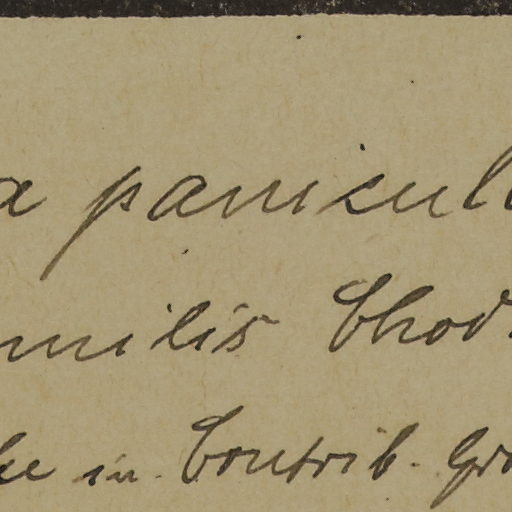 a panicul
milis Chod.
ke in Contrib. Gra